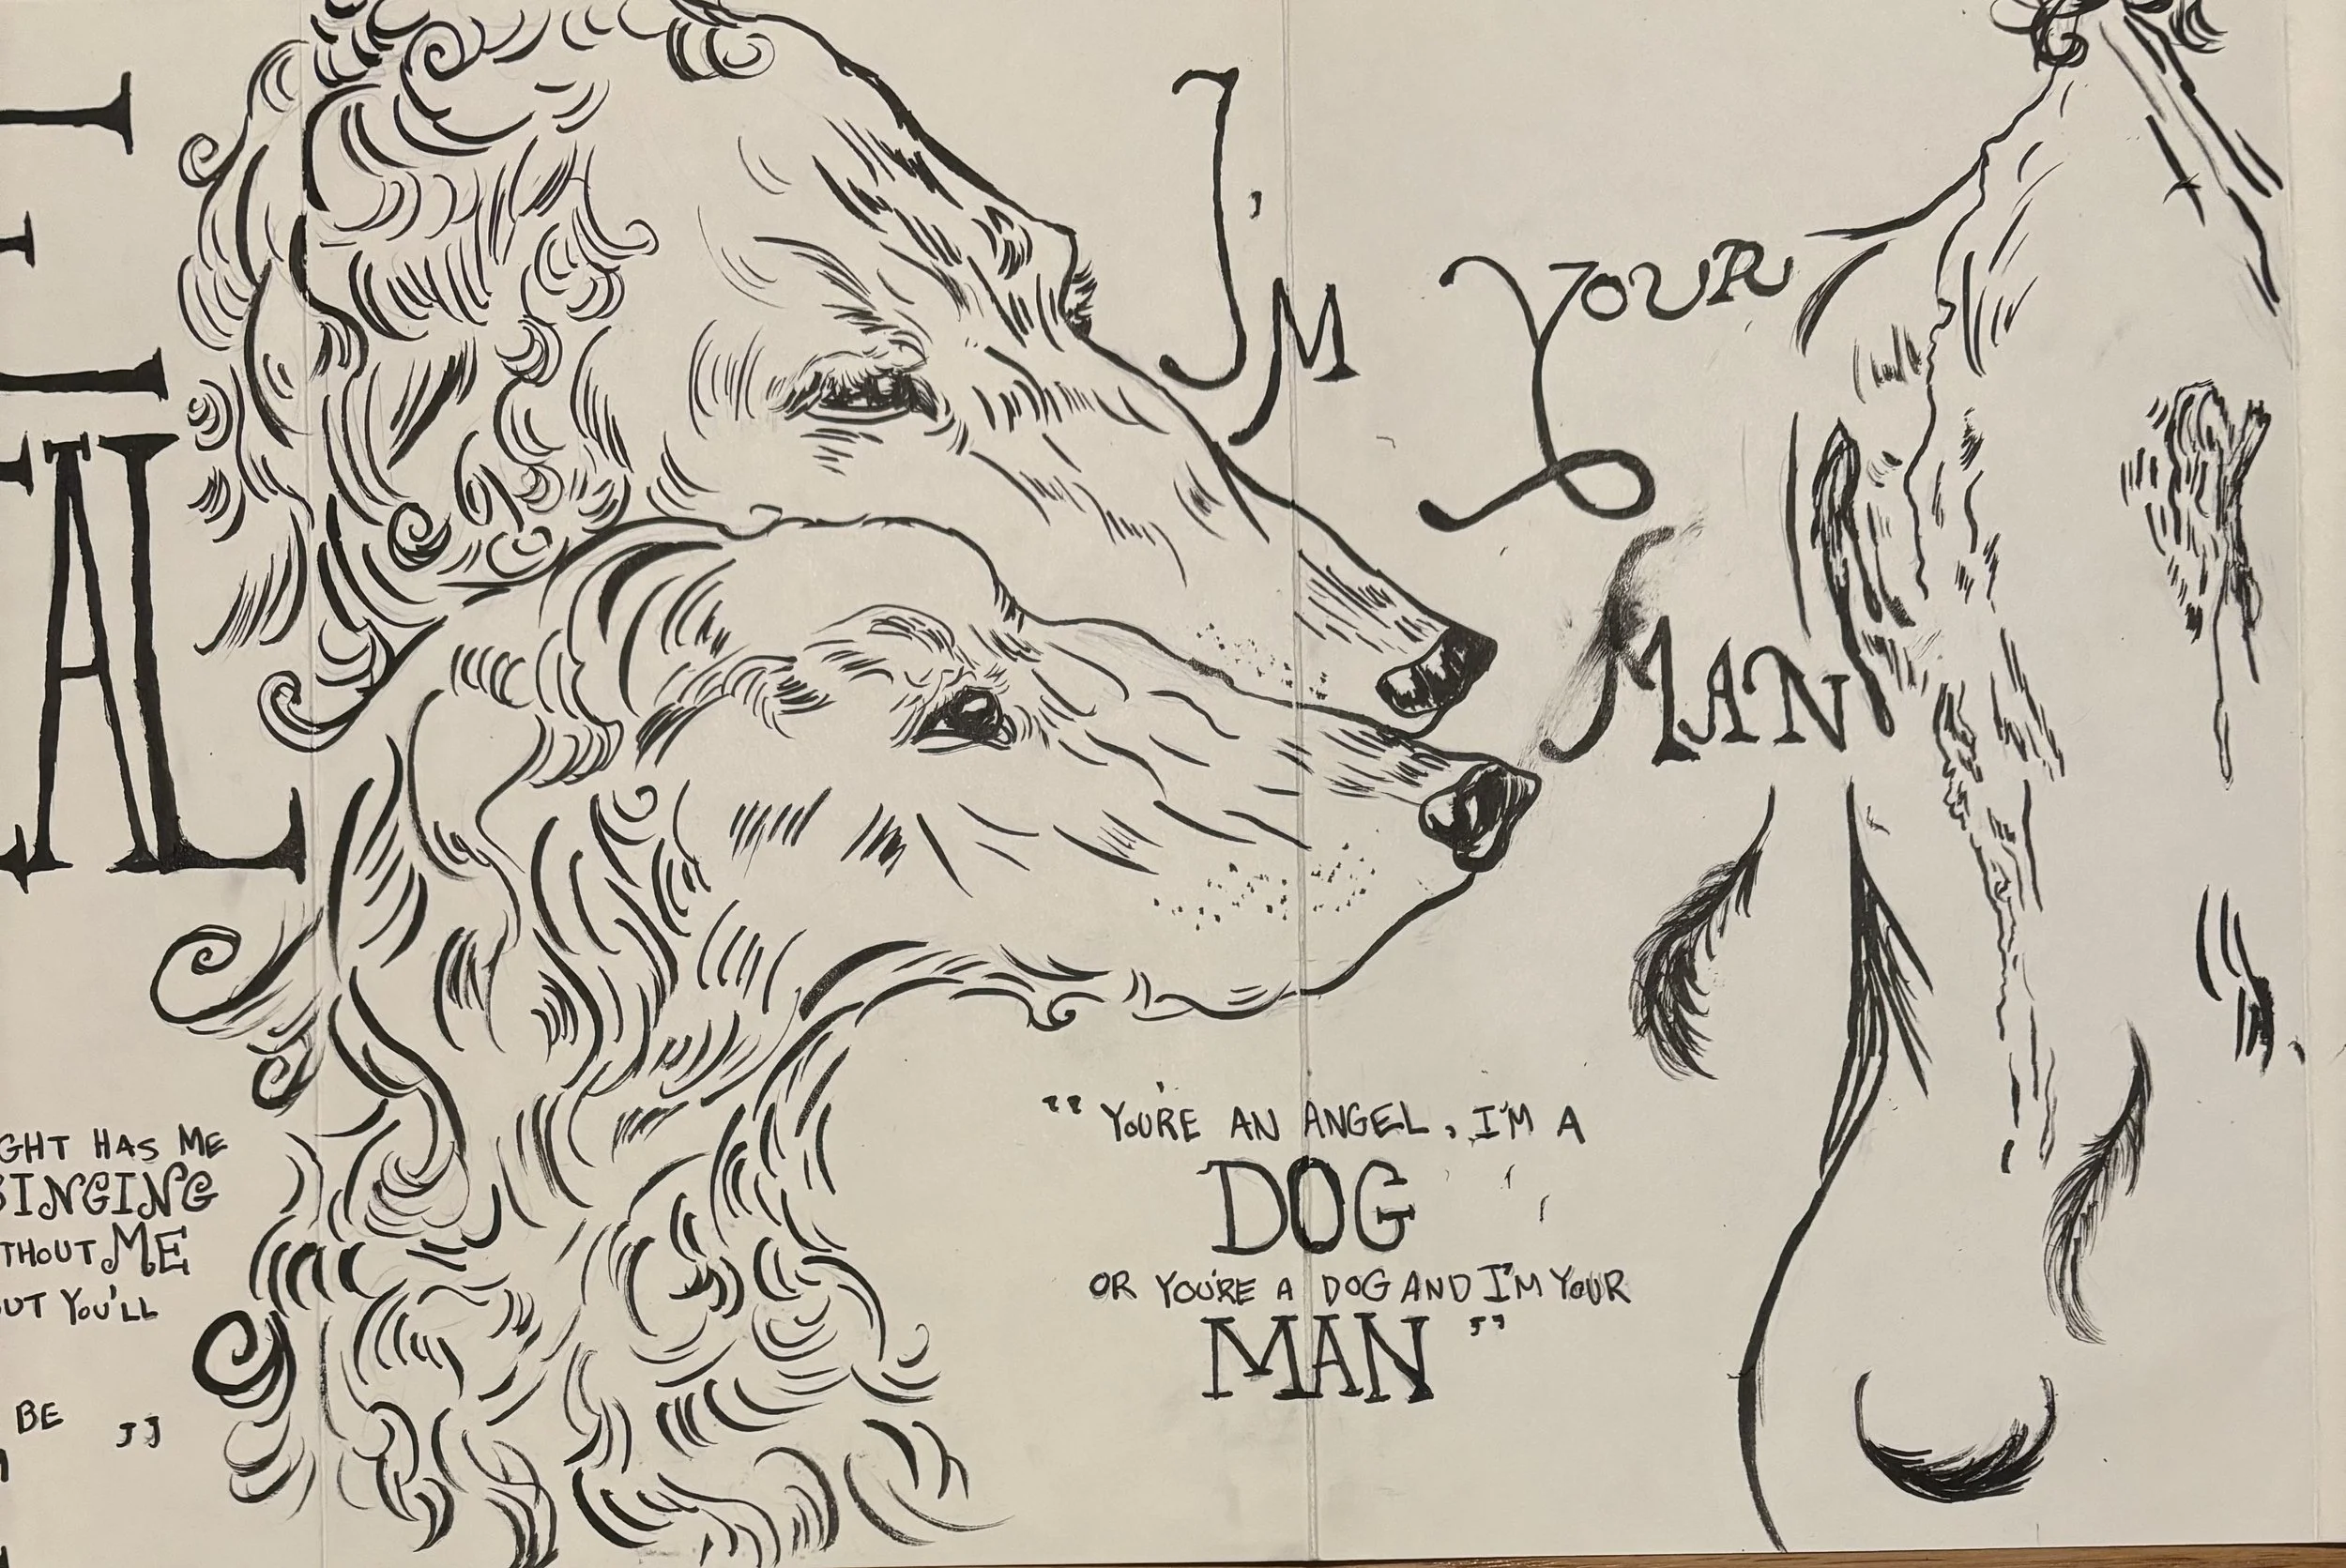 AL
GHT HAS ME
SINGING
THOUT ME
BUT YOU'LL
BE "
I'M
YOUR
MAN
" YOU'RE AN ANGEL, I'M A
DOG
OR YOU'RE A DOG AND I'M YOUR
MAN "